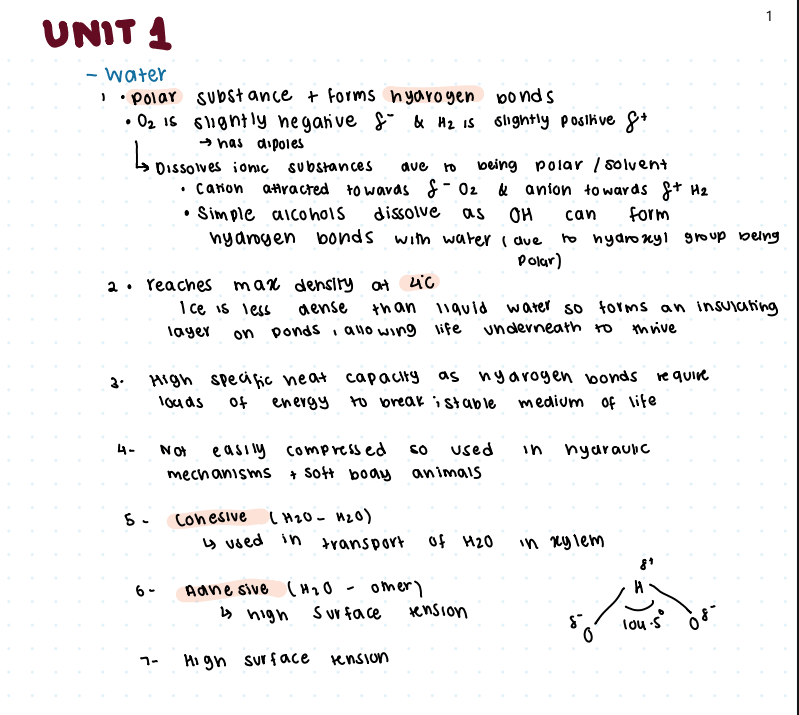 1
UNIT 1
- Water
1 • polar substance + forms hydrogen bonds
• O2 is slightly negative δ- & H2 is slightly positive δ+
→ has dipoles
↳ Dissolves ionic substances due to being polar / solvent
• Cation attracted towards δ- O2 & anion towards δ+ H2
• Simple alcohols dissolve as OH can form
hydrogen bonds with water (due to hydroxyl group being
polar)
2. • reaches max density at 4°C
Ice is less dense than liquid water so forms an insulating
layer on ponds, allowing life underneath to thrive
3. High specific heat capacity as hydrogen bonds require
loads of energy to break ; stable medium of life
4- Not easily compressed so used in hydraulic
mechanisms + soft body animals
5 - Cohesive (H2O - H2O)
↳ used in transport of H2O in xylem
6- Adhesive (H2O - other)
↳ high surface tension
7- High surface tension
δ+
H
δ- O 104.5° O δ-